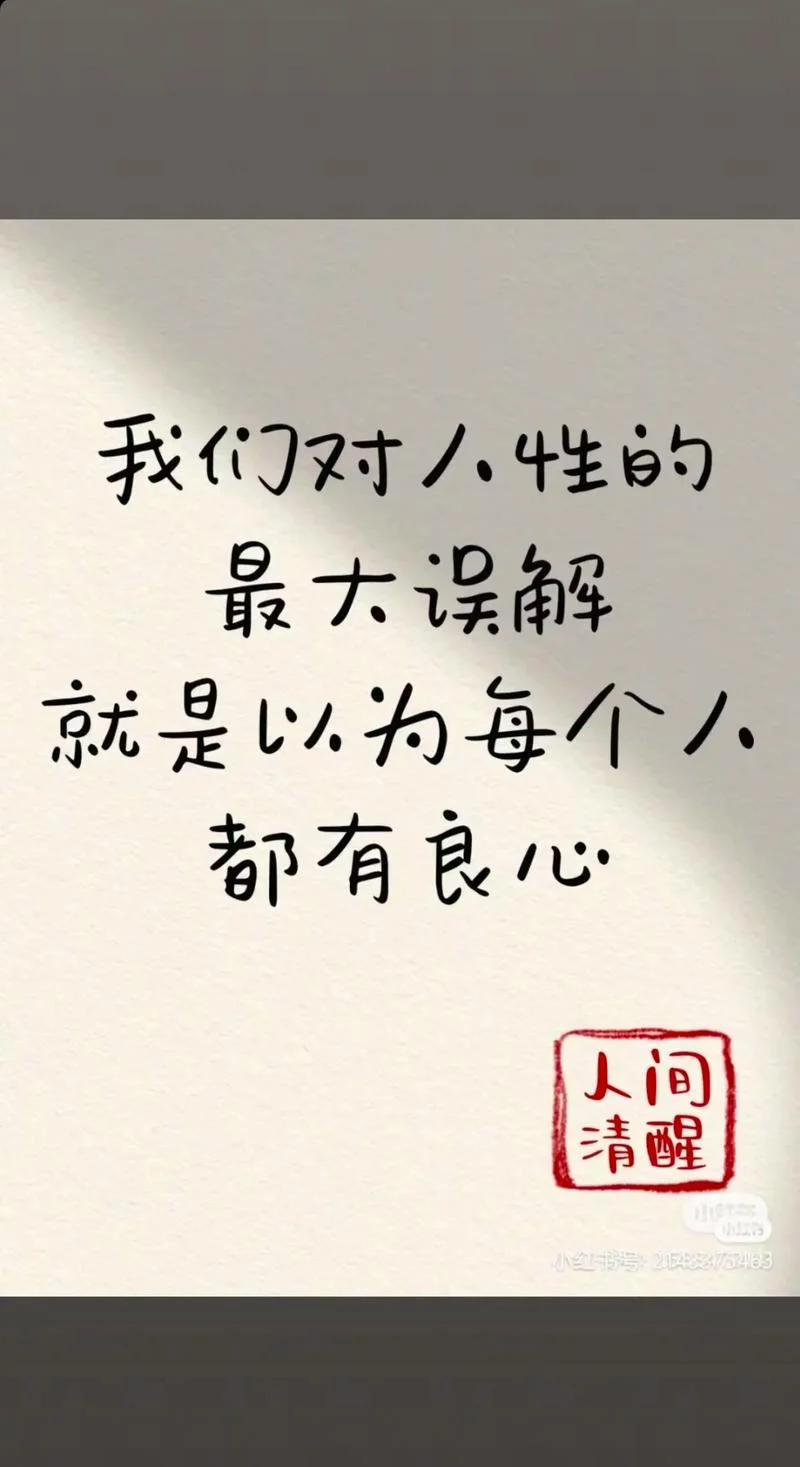 我们对人性的
最大误解
就是以为每个人
都有良心
人间
清醒
小红书
小红书号: